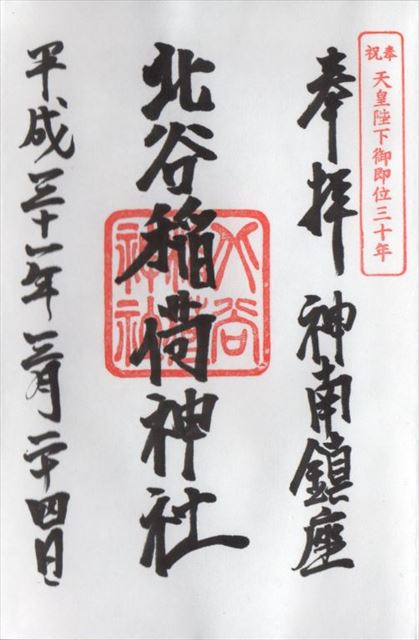 奉祝
天皇陛下御即位三十年
奉拝 神南鎮座
北谷稲荷神社
平成三十一年三月二十四日